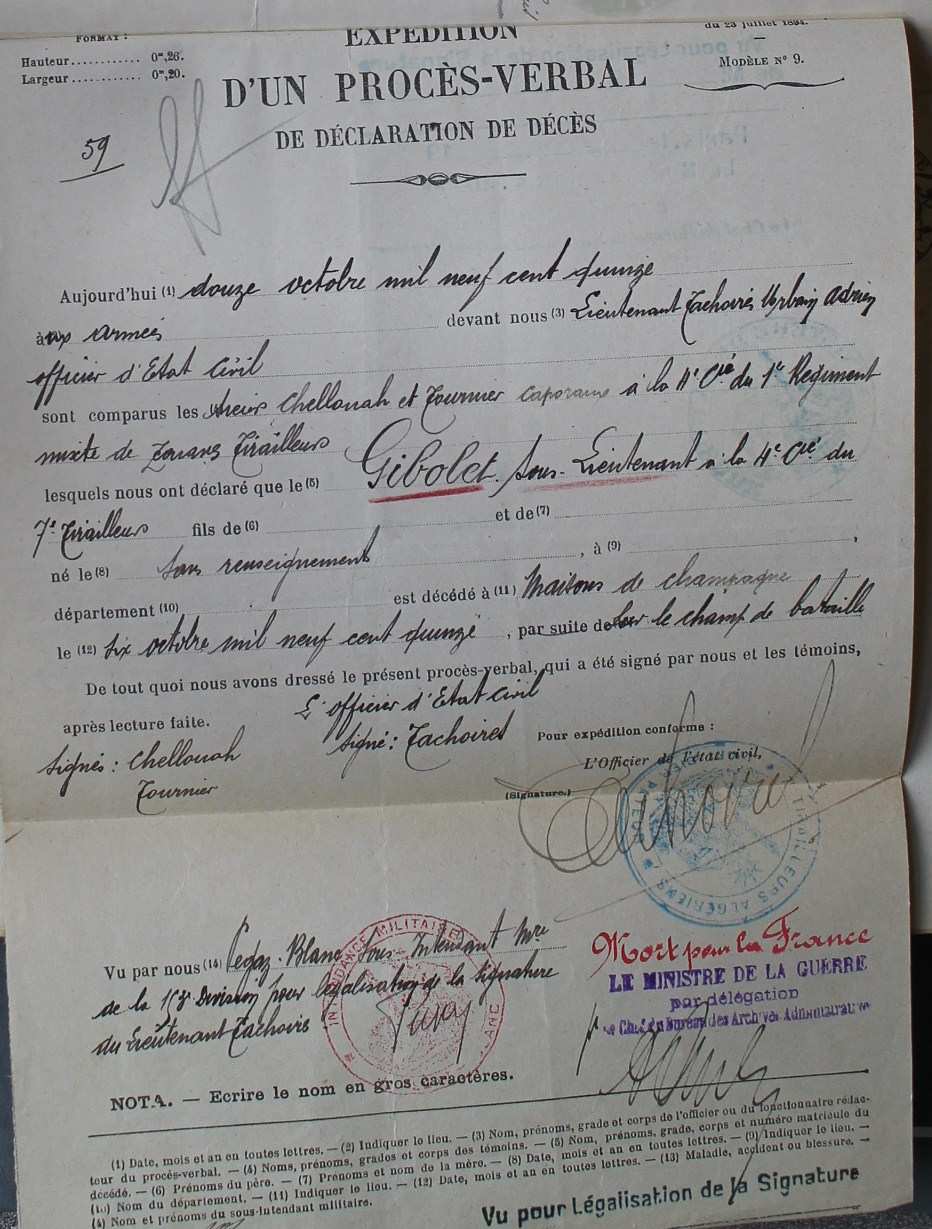 FORMAT :
Hauteur........... 0m,26.
Largeur ............ 0m,20.
EXPÉDITION
D'UN PROCÈS-VERBAL
DE DÉCLARATION DE DÉCÈS
du 23 juillet 1894.
MODÈLE N° 9.
59
Aujourd'hui (1) douze octobre mil neuf cent quinze
aux armées devant nous (3) Lieutenant Tachoirés Urbain Adrien
officier d'Etat Civil
sont comparus les Chellouah et Tournier caporaux à la 4e Cie du 1er Regiment
mixte de Zouaves Tirailleurs
lesquels nous ont déclaré que le (5) Gibolet. Sous-Lieutenant à la 4e Cie du
7e Tirailleurs fils de (6) et de (7)
né le (8) Sans renseignement , à (9) ,
département (10) est décédé à (11) Maisons de champagne
le (12) Six octobre mil neuf cent quinze , par suite de sur le champ de bataille
De tout quoi nous avons dressé le présent procès-verbal, qui a été signé par nous et les témoins,
après lecture faite.
L'officier d'Etat Civil
Signé : Tachoires
Signés : Chellouah
Tournier
Pour expédition conforme :
L'Officier de l'état civil,
(Signature.)
TIRAILLEURS ALGÉRIENS
Vu par nous (14) Pegaz-Blanc Sous-Intendant Mre
de la 153e Division pour légalisation de la Signature
du Lieutenant Tachoirés
INTENDANCE MILITAIRE
Mort pour la France
LE MINISTRE DE LA GUERRE
par délégation
Le Chef du Bureau des Archives Administratives
NOTA. — Ecrire le nom en gros caractères.
(1) Date, mois et an en toutes lettres. — (2) Indiquer le lieu. — (3) Nom, prénoms, grade et corps de l'officier ou du fonctionnaire rédac-
teur du procès-verbal. — (4) Noms, prénoms, grades et corps des témoins. — (5) Nom, prénoms, grade, corps et numéro matricule du
décédé. — (6) Prénoms du père. — (7) Prénoms et nom de la mère. — (8) Date, mois et an en toutes lettres. — (9) Indiquer le lieu. —
(10) Nom du département. — (11) Indiquer le lieu. — (12) Date, mois et an en toutes lettres. — (13) Maladie, accident ou blessure. —
(4) Nom et prénoms du sous-intendant militaire.
Vu pour Légalisation de la Signature